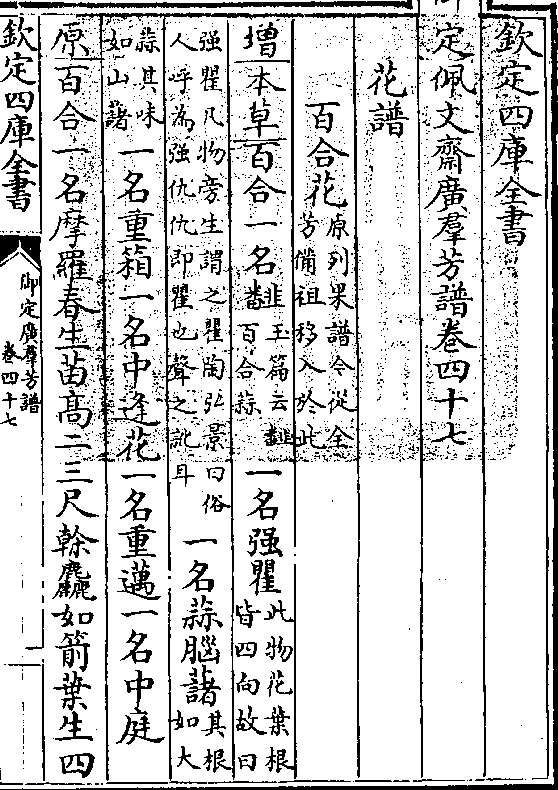 欽定四庫全書
定佩文齋廣羣芳譜卷四十七
花譜
百合花原列果譜今從全芳備祖移入於此
增本草百合一名䪤玉篇云䪤百合蒜一名强瞿此物花葉根皆四向故曰
强瞿凡物旁生謂之瞿陶弘景曰俗人呼為强仇仇即瞿也聲之訛耳一名蒜腦藷其根如大
蒜其味如山藷一名重箱一名中逢花一名重邁一名中庭
原百合一名摩羅春生苗高二三尺幹麤如箭葉生四
欽定四庫全書
御定廣羣芳譜
卷四十七